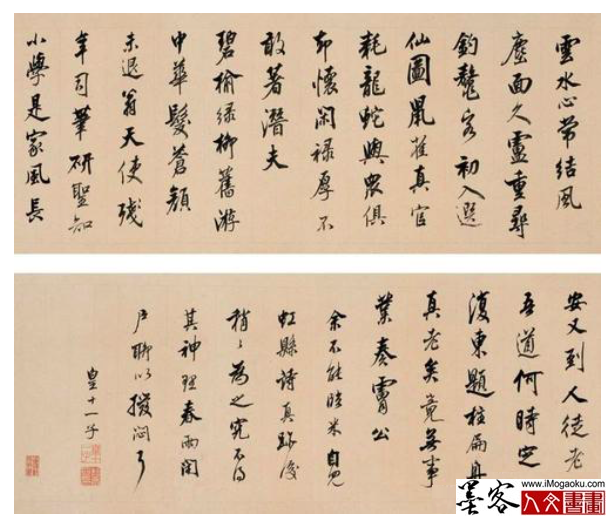 雲水心常結風
塵面久盧重尋
釣鼇客初入選
仙圖鼠雀真官
耗龍蛇與衆俱
却懷閑祿厚不
敢著潛夫
碧榆綠柳舊游
中華髮蒼顏
未退翁天使殘
年司筆研聖知
小學是家風長
安又到人徒老
吾道何時定
復東題柱扁舟
真老矣竟無事
業奏膚公
余不能臨米自見
虹縣詩真跡後
稍〻為之究不得
其神理春雨閉
戶聊以撥悶耳
皇十一子
www.iMogaoku.com
墨客人文書畫